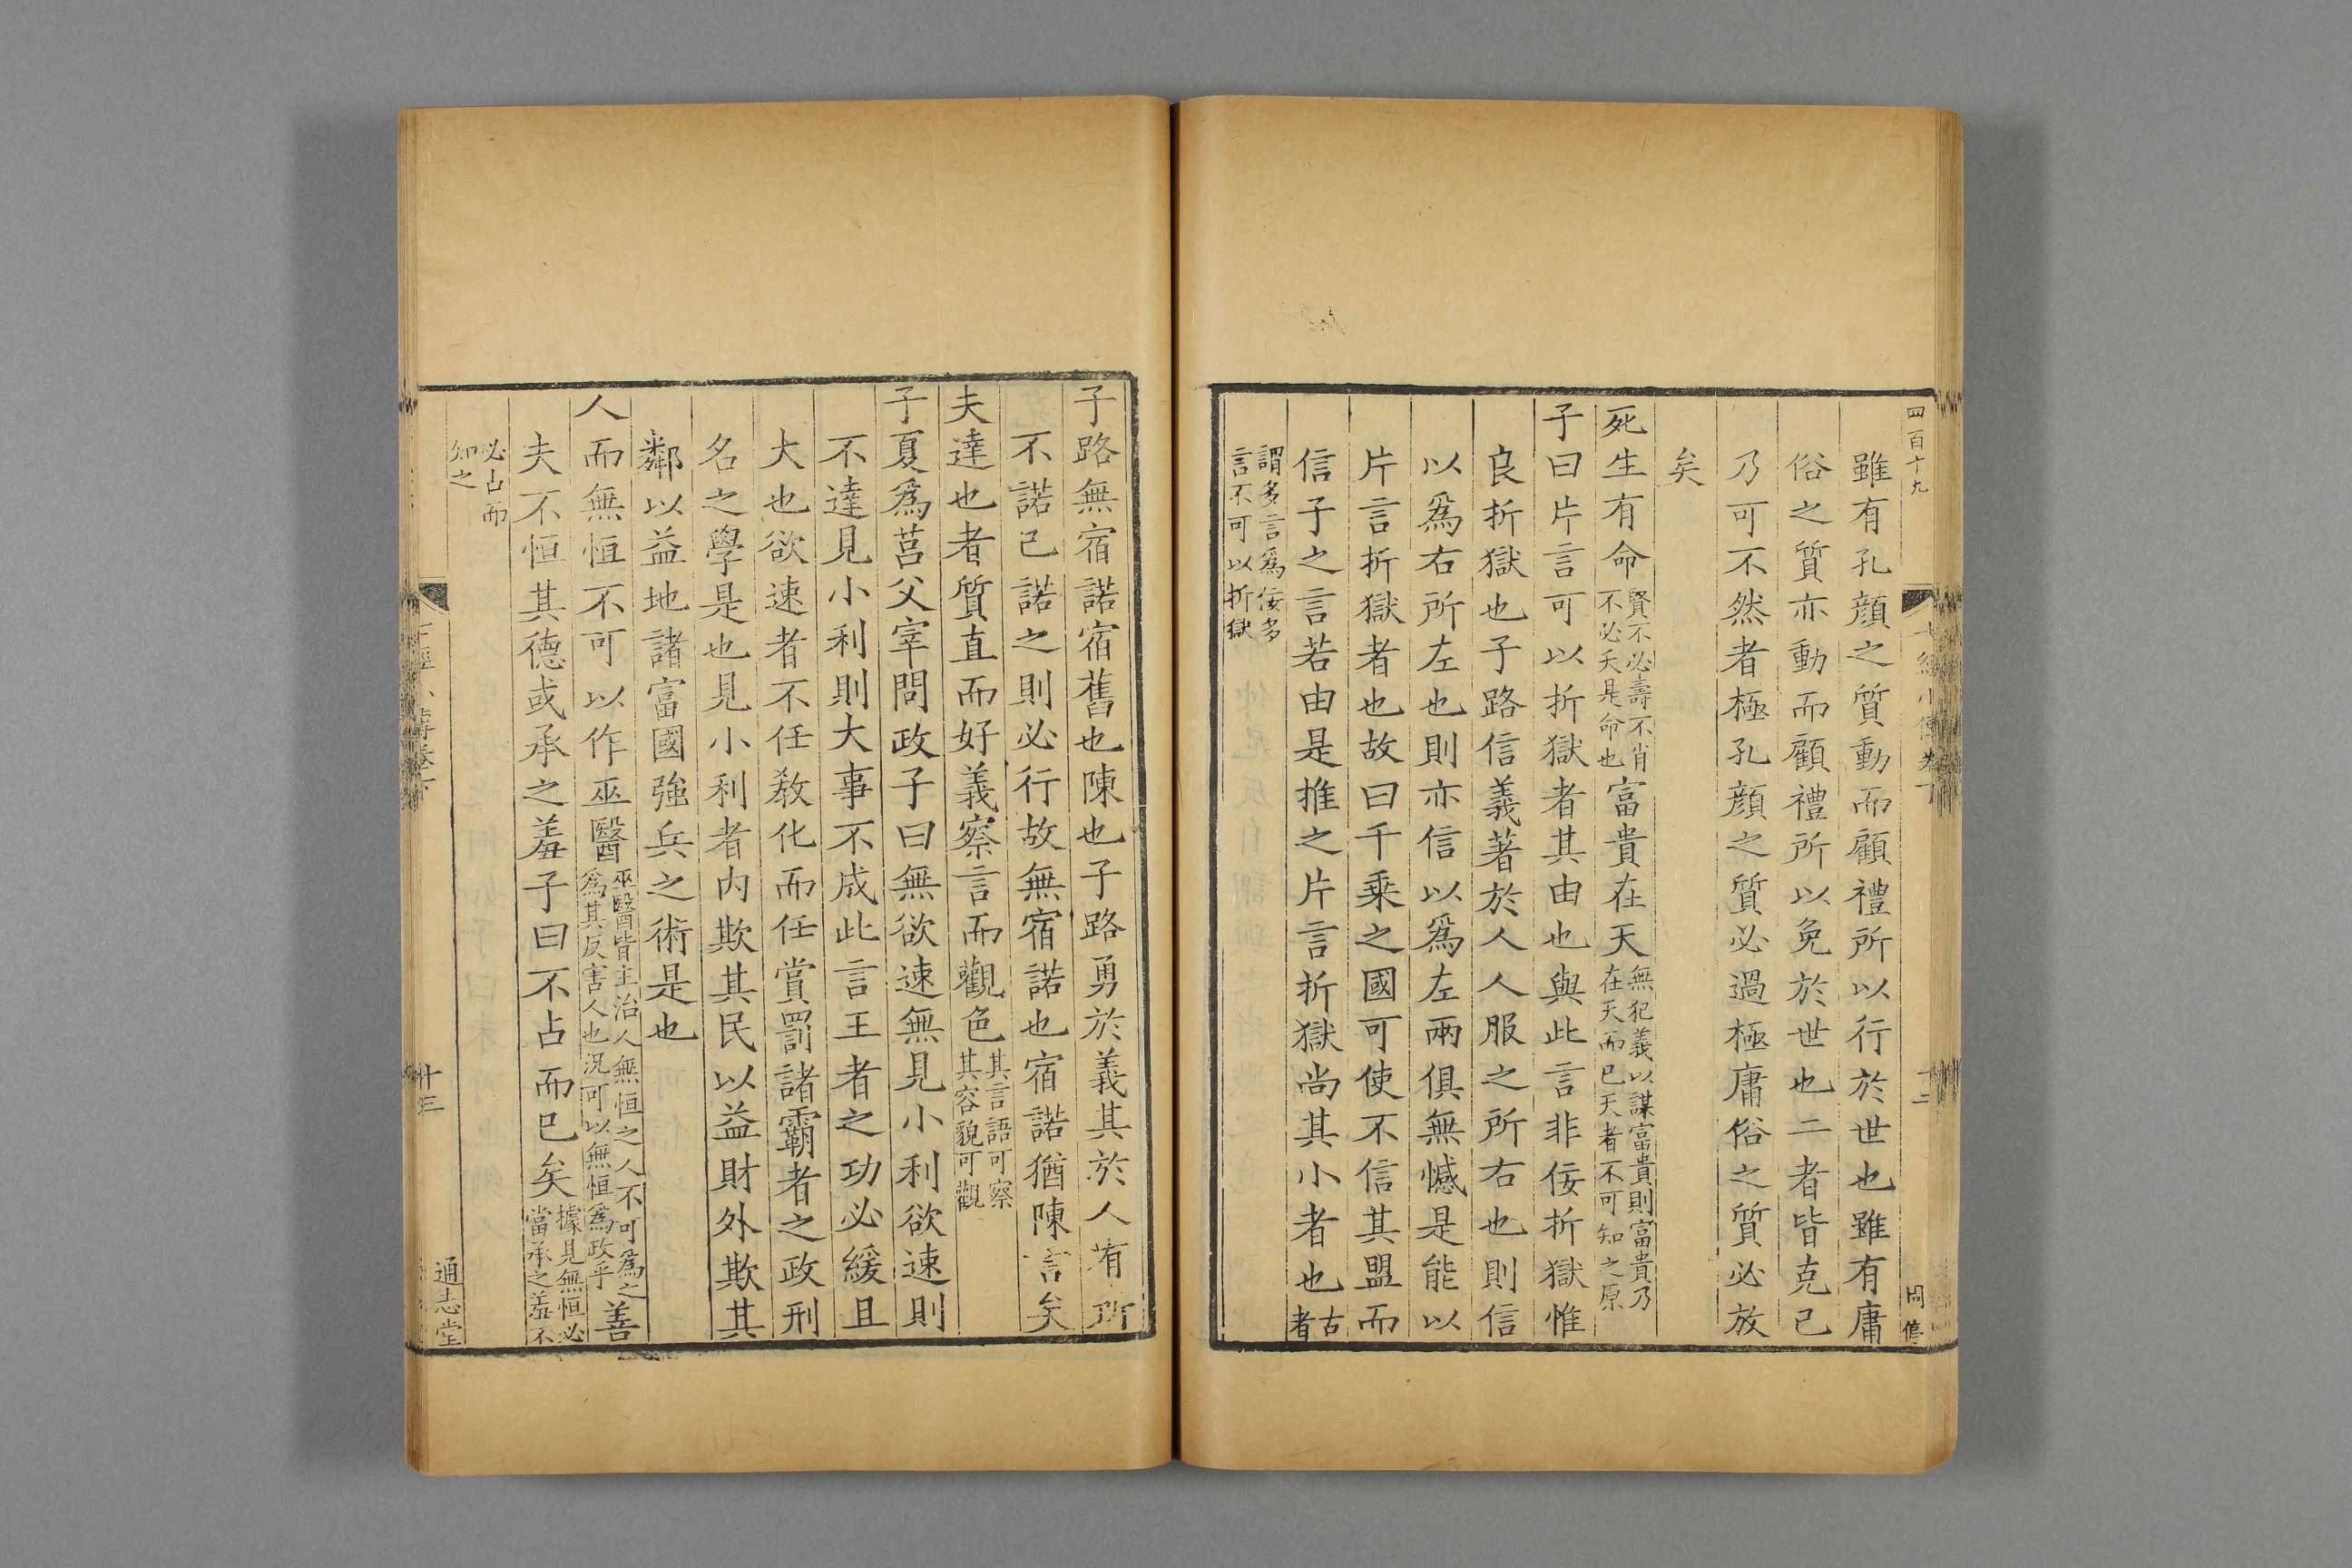 四百十九
雖有孔顔之質動而顧禮所以行於世也雖有庸
俗之質亦動而顧禮所以免於世也二者皆克己
乃可不然者極孔顔之質必過極庸俗之質必放
矣
死生有命賢不必壽不肖不必夭是命也富貴在天無犯義以謀富貴則富貴乃在天而已天者不可知之原
子曰片言可以折獄者其由也與此言非佞折獄惟
良折獄也子路信義著於人人服之所右也則信
以爲右所左也則亦信以爲左兩俱無憾是能以
片言折獄者也故曰千乗之國可使不信其盟而
信子之言若由是推之片言折獄尚其小者也古者
謂多言爲佞多言不可以折獄
子路無宿諾宿舊也陳也子路勇於義其於人有所
不諾已諾之則必行故無宿諾也宿諾猶陳言矣
夫達也者質直而好義察言而觀色其言語可察其容貌可觀
子夏爲莒父宰問政子曰無欲速無見小利欲速則
不達見小利則大事不成此言王者之功必緩且
大也欲速者不任敎化而任賞罰諸霸者之政刑
名之學是也見小利者内欺其民以益財外欺其
鄰以益地諸富國強兵之術是也
人而無恒不可以作巫醫巫醫皆主治人無恒之人不可爲之爲其反害人也況可以無恒爲政乎善
夫不恒其德或承之羞子曰不占而已矣據見無恒必當承之羞不
必占而知之
廿三
通志堂